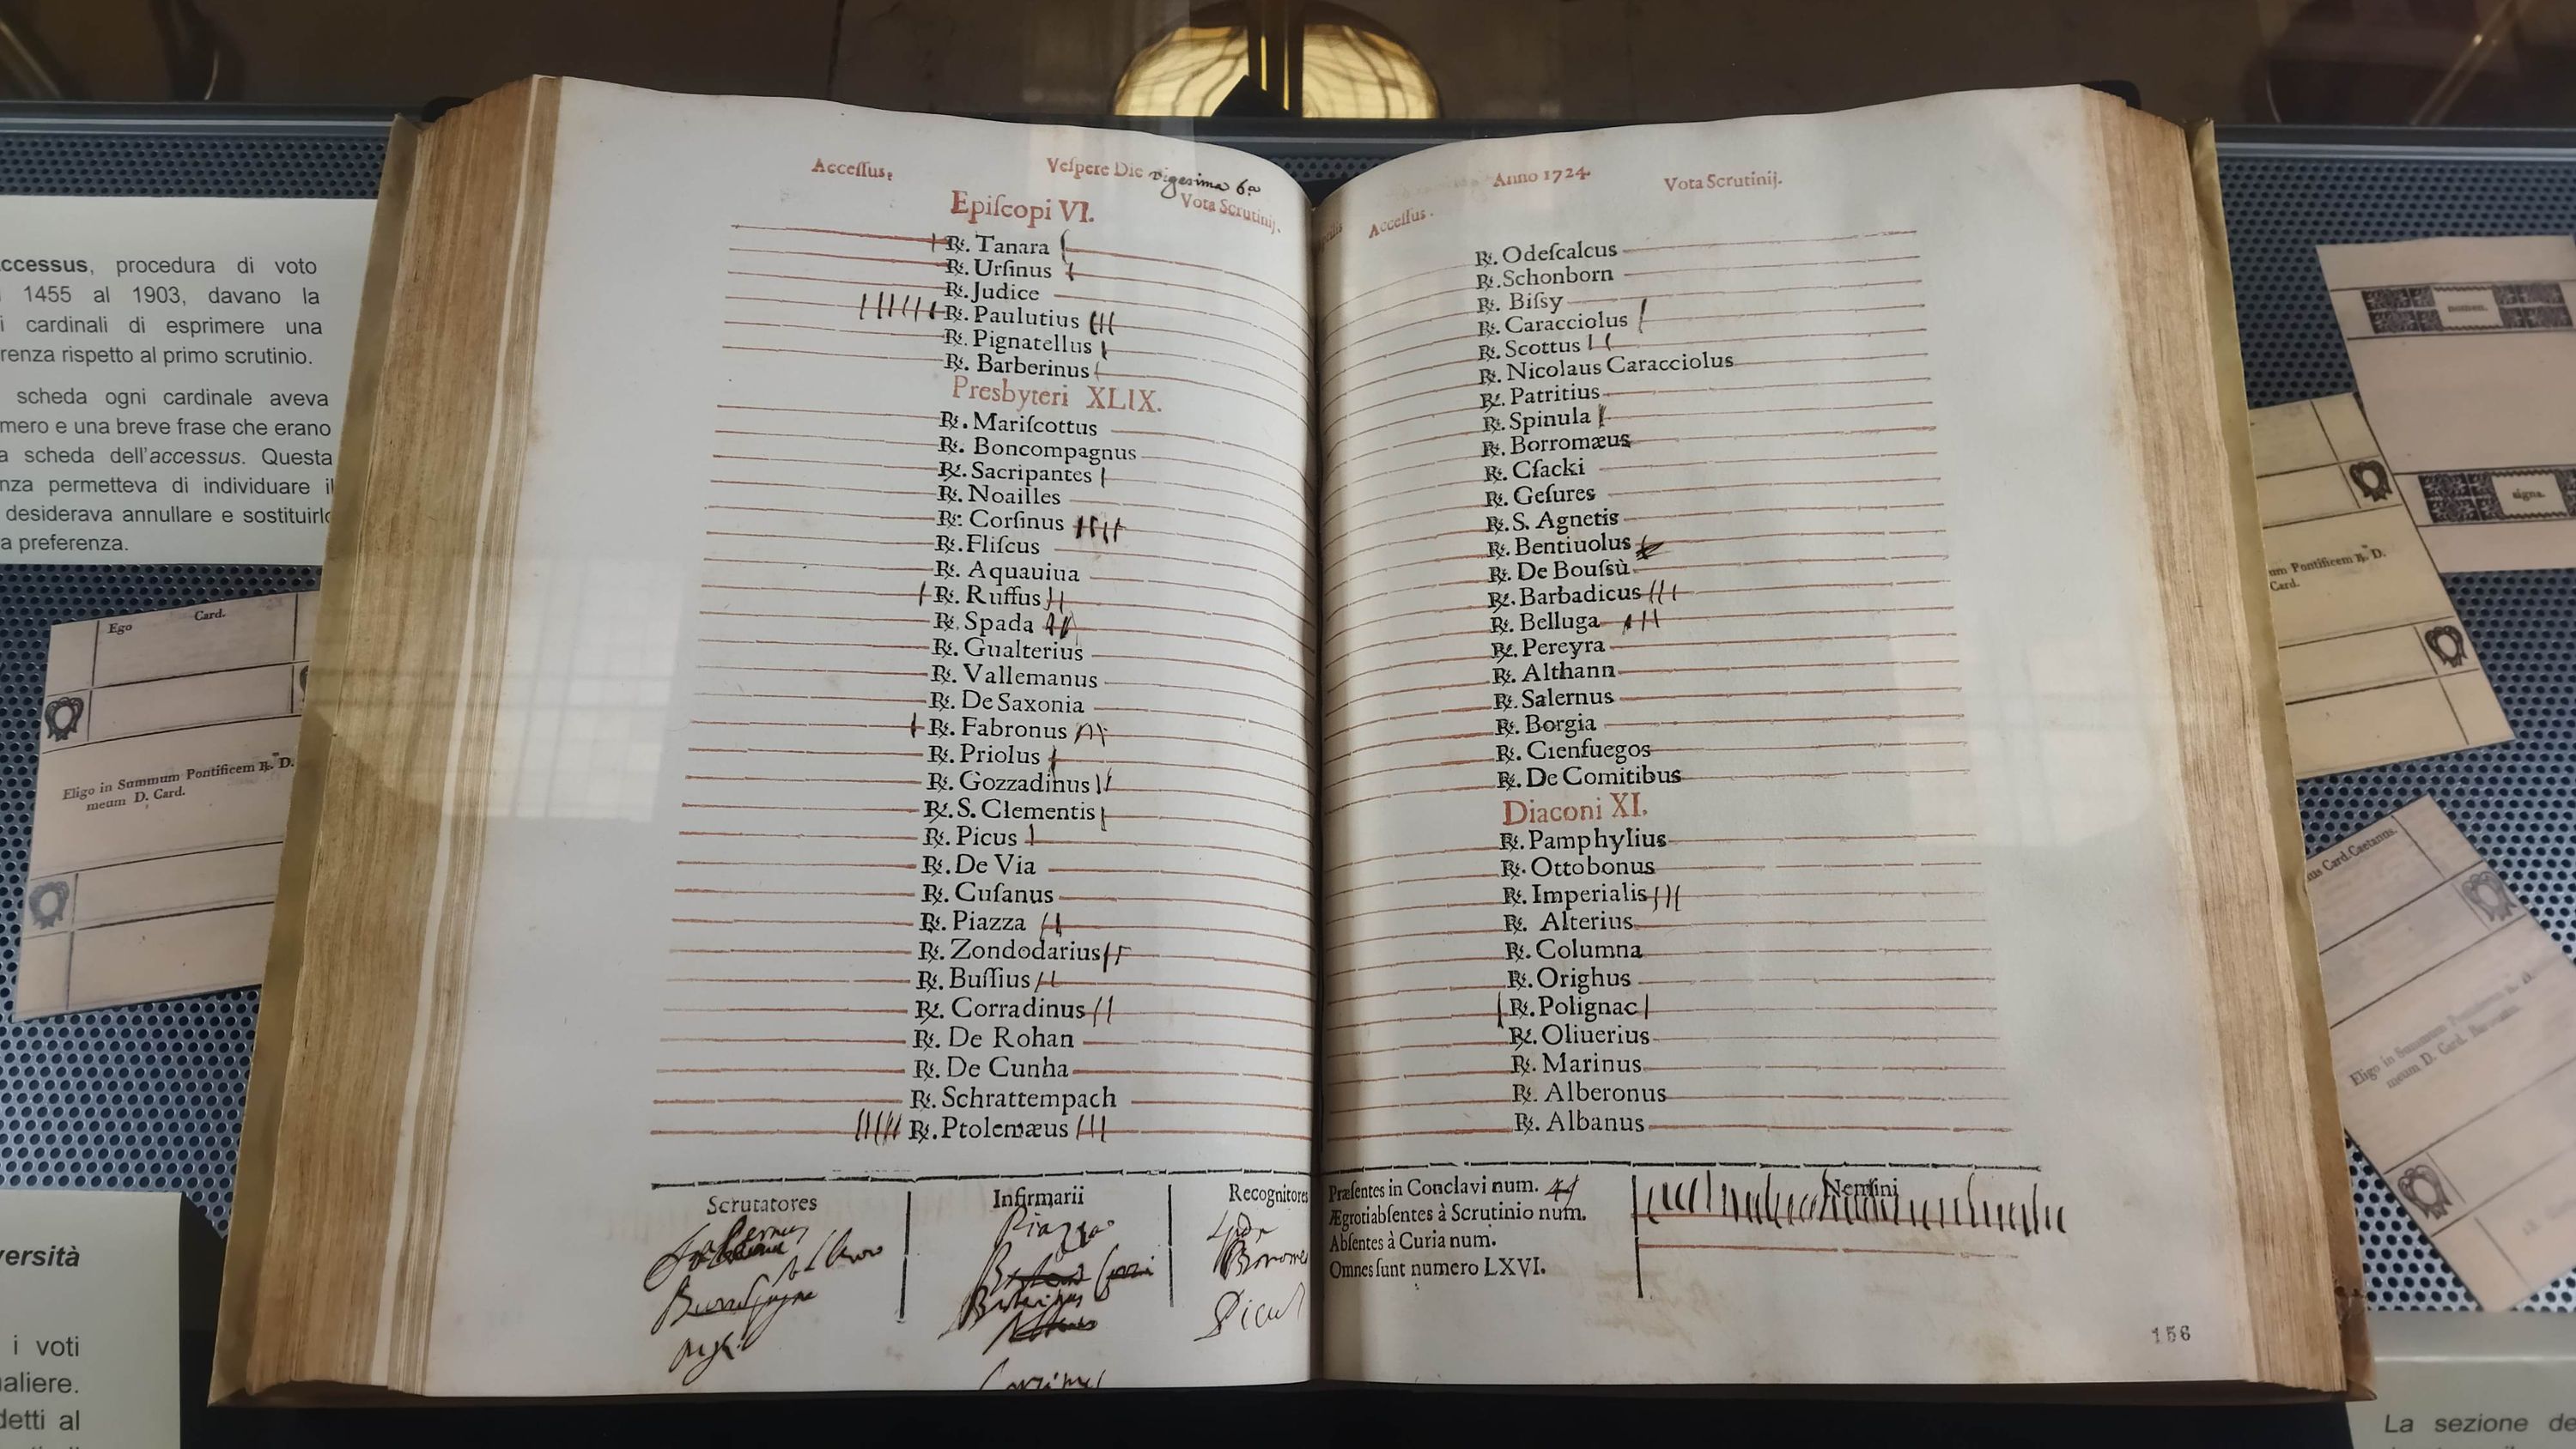 Accessus, procedura di voto
1455 al 1903, davano la
cardinali di esprimere una
rispetto al primo scrutinio.
scheda ogni cardinale aveva
e una breve frase che erano
scheda dell'accessus. Questa
permetteva di individuare il
desiderava annullare e
a preferenza.
Ego Card.
Eligo in Summum Pontificem R. D.
meum D. Card.
i voti
Acceſſus,
Veſpere Die vigesima 6.a
Vota Scrutinij.
Epiſcopi VI.
R. Tanara
R. Urſinus
R. Judice
R. Paulutius
R. Pignatellus
R. Barberinus
Presbyteri XLIX.
R. Mariſcottus
R. Boncompagnus
R. Sacripantes
R. Noailles
R: Corſinus
R. Fliſcus
R. Aquauiua
R. Ruffus
R. Spada
R. Gualterius
R. Vallemanus
R. De Saxonia
R. Fabronus
R. Priolus
R. Gozzadinus
R. S. Clementis
R. Picus
R. De Via
R. Cuſanus
R. Piazza
R. Zondodarius
R. Buſſius
R. Corradinus
R. De Rohan
R. De Cunha
R. Schrattempach
R. Ptolemæus
Scrutatores
Infirmarii
Piazza
Recognitores
Anno 1724.
Acceſſus.
Vota Scrutinij.
R. Odeſcalcus
R. Schonborn
R. Biſsy
R. Caracciolus
R. Scottus
R. Nicolaus Caracciolus
R. Patritius
R. Spinula
R. Borromæus
R. Cſacki
R. Geſures
R. S. Agnetis
R. Bentiuolus
R. De Bouſsù
R. Barbadicus
R. Belluga
R. Pereyra
R. Althann
R. Salernus
R. Borgia
R. Cienfuegos
R. De Comitibus
Diaconi XI.
R. Pamphylius
R. Ottobonus
R. Imperialis
R. Alterius
R. Columna
R. Orighus
R. Polignac
R. Oliuerius
R. Marinus
R. Alberonus
R. Albanus
Præſentes in Conclavi num.
Ægroti abſentes à Scrutinio num.
Abſentes à Curia num.
Omnes ſunt numero LXVI.
Nemini
156
nomen.
signa.
Pontificem R. D.
Card.
Card. Caetanus.
Eligo in Summum Pontificem R. D.
meum D. Card.
La sezione